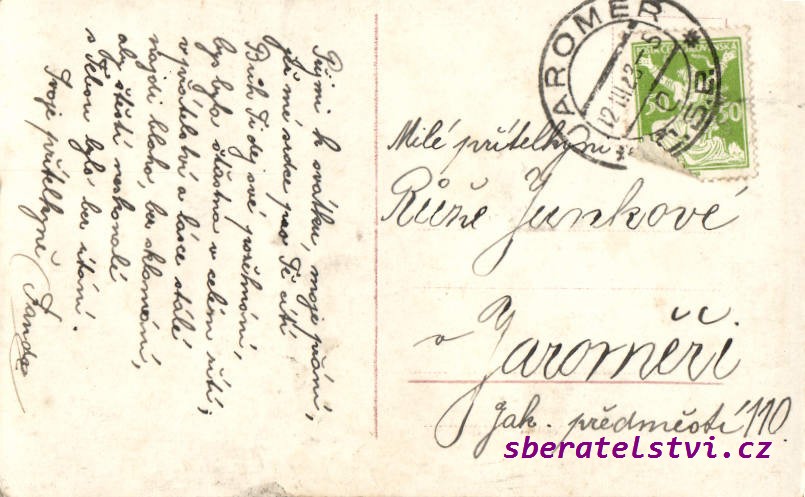 Přijmi k svátku, moje přání,
jež mé srdce pro Tě cítí
Bůh Ti dej své požehnání,
bys byla šťastna v celém žití;
v přátelství a lásce stálé
najdi blaho, bez sklamání,
aby štěstí neskonalé
s Tebou bylo bez ustání.
Tvoje přítelkyně Standa
JAROMĚŘ
12.III.22
50 50
Milé přítelkyni
Růže Junkové
v
Jaroměři
Jak. předměstí 110.
sberatelstvi.cz